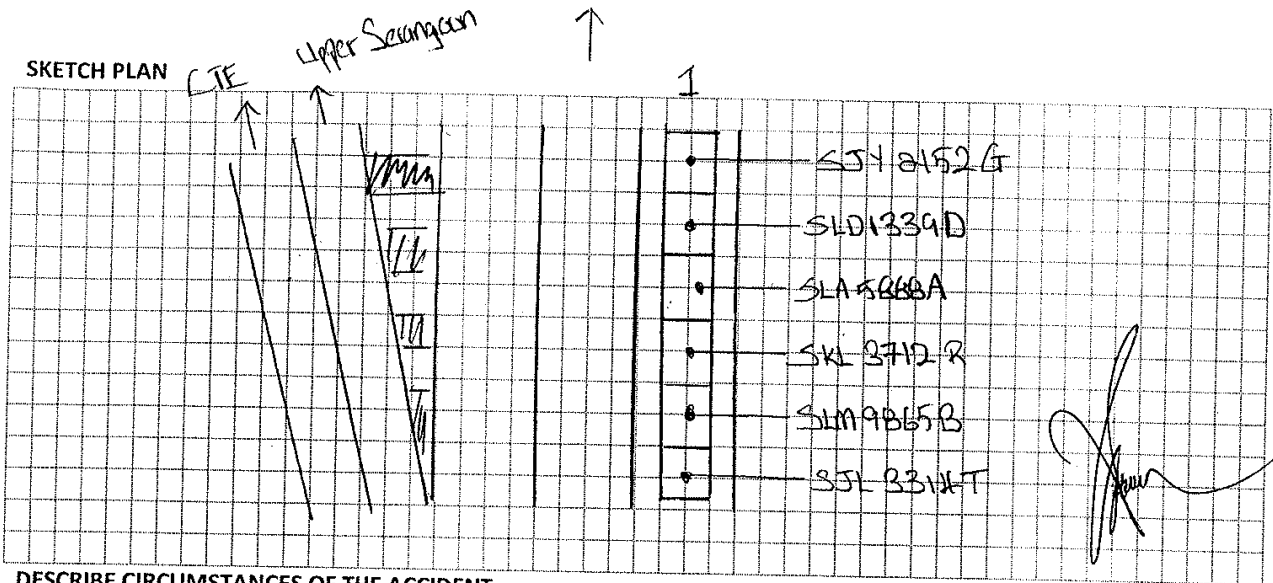 SKETCH PLAN
CTE
Upper Serangoon
1
SJY 8152 G
SLD1339D
SLA5868A
SKL 3712 R
SLM9865B
SJL 3314T
DESCRIBE CIRCUMSTANCES OF THE ACCIDENT